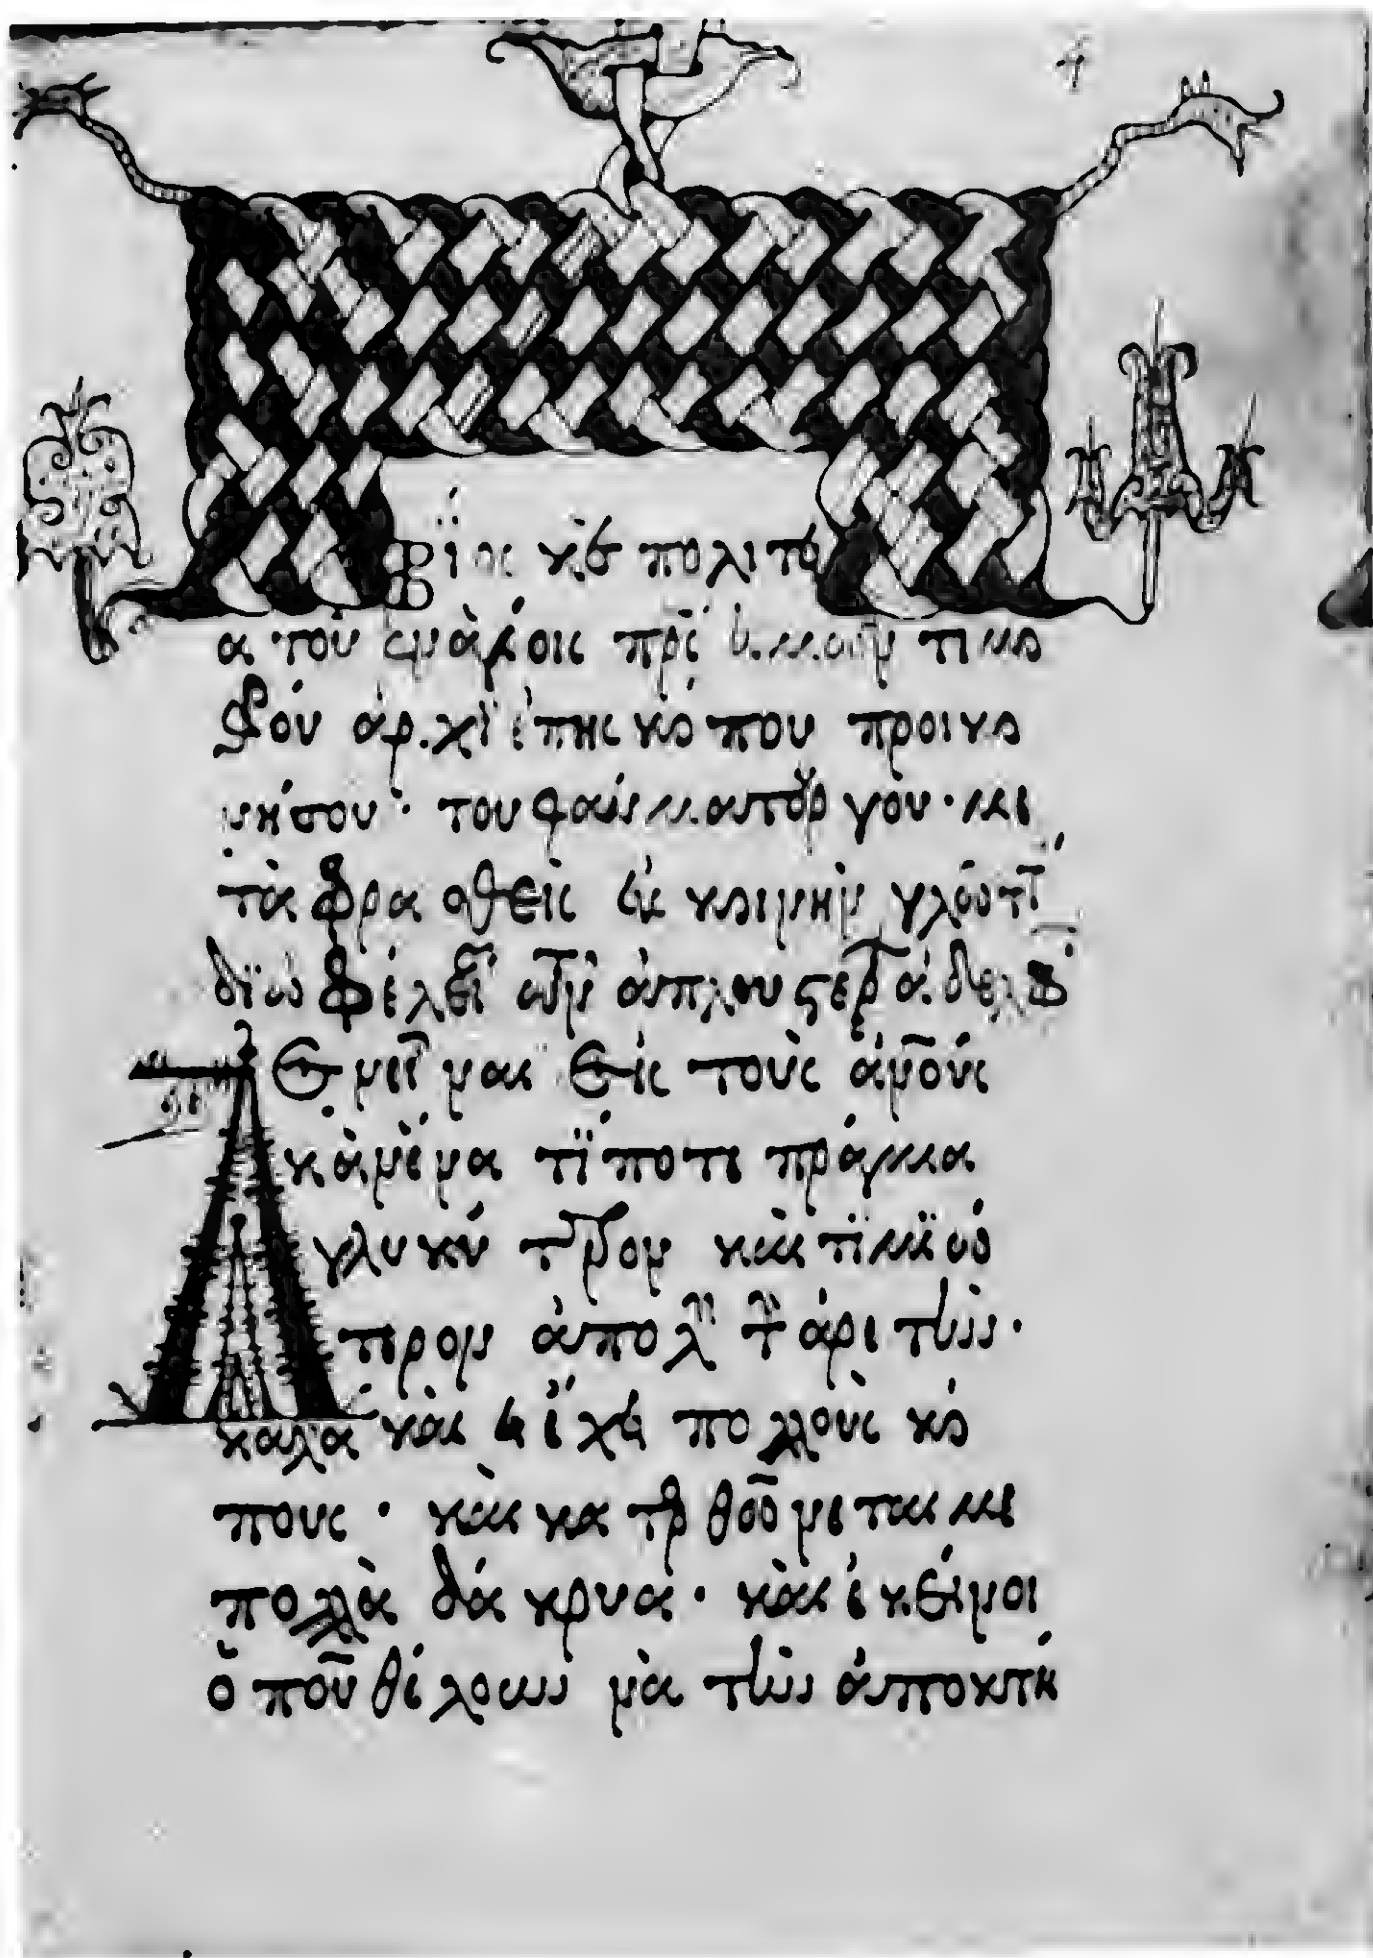 βίος κ̀ πολιτεί
α τοῦ ἐν ἁγίοις πρ̅ς ἡμῶν τιμο
θέου ἀρχϊεπησκόπου προικο
νήσου· του θαύματουργοῦ· με
τὰφρασθεὶς ἐκ κοινὴν γλῶττ
δϊ ὠφέλει τῶν ἁπλουστέρ ἀδελφ
Εμεῖναι εἰς τοὺς ἀνοὺς
κὰνένα τϊποτε πράγμα
γλυκύτερον καὶ τϊμϊώ
τερον ἀπο τ ἀρετὴν·
καλὰ καὶ ἔχει πολλοὺς κό
πους· καὶ κατορθοῦνεται με
πολλὰ δάκρυα· καὶ ἐκεῖνοι
ὁποῦ θέλουν νὰ τὴν ἀποκτή